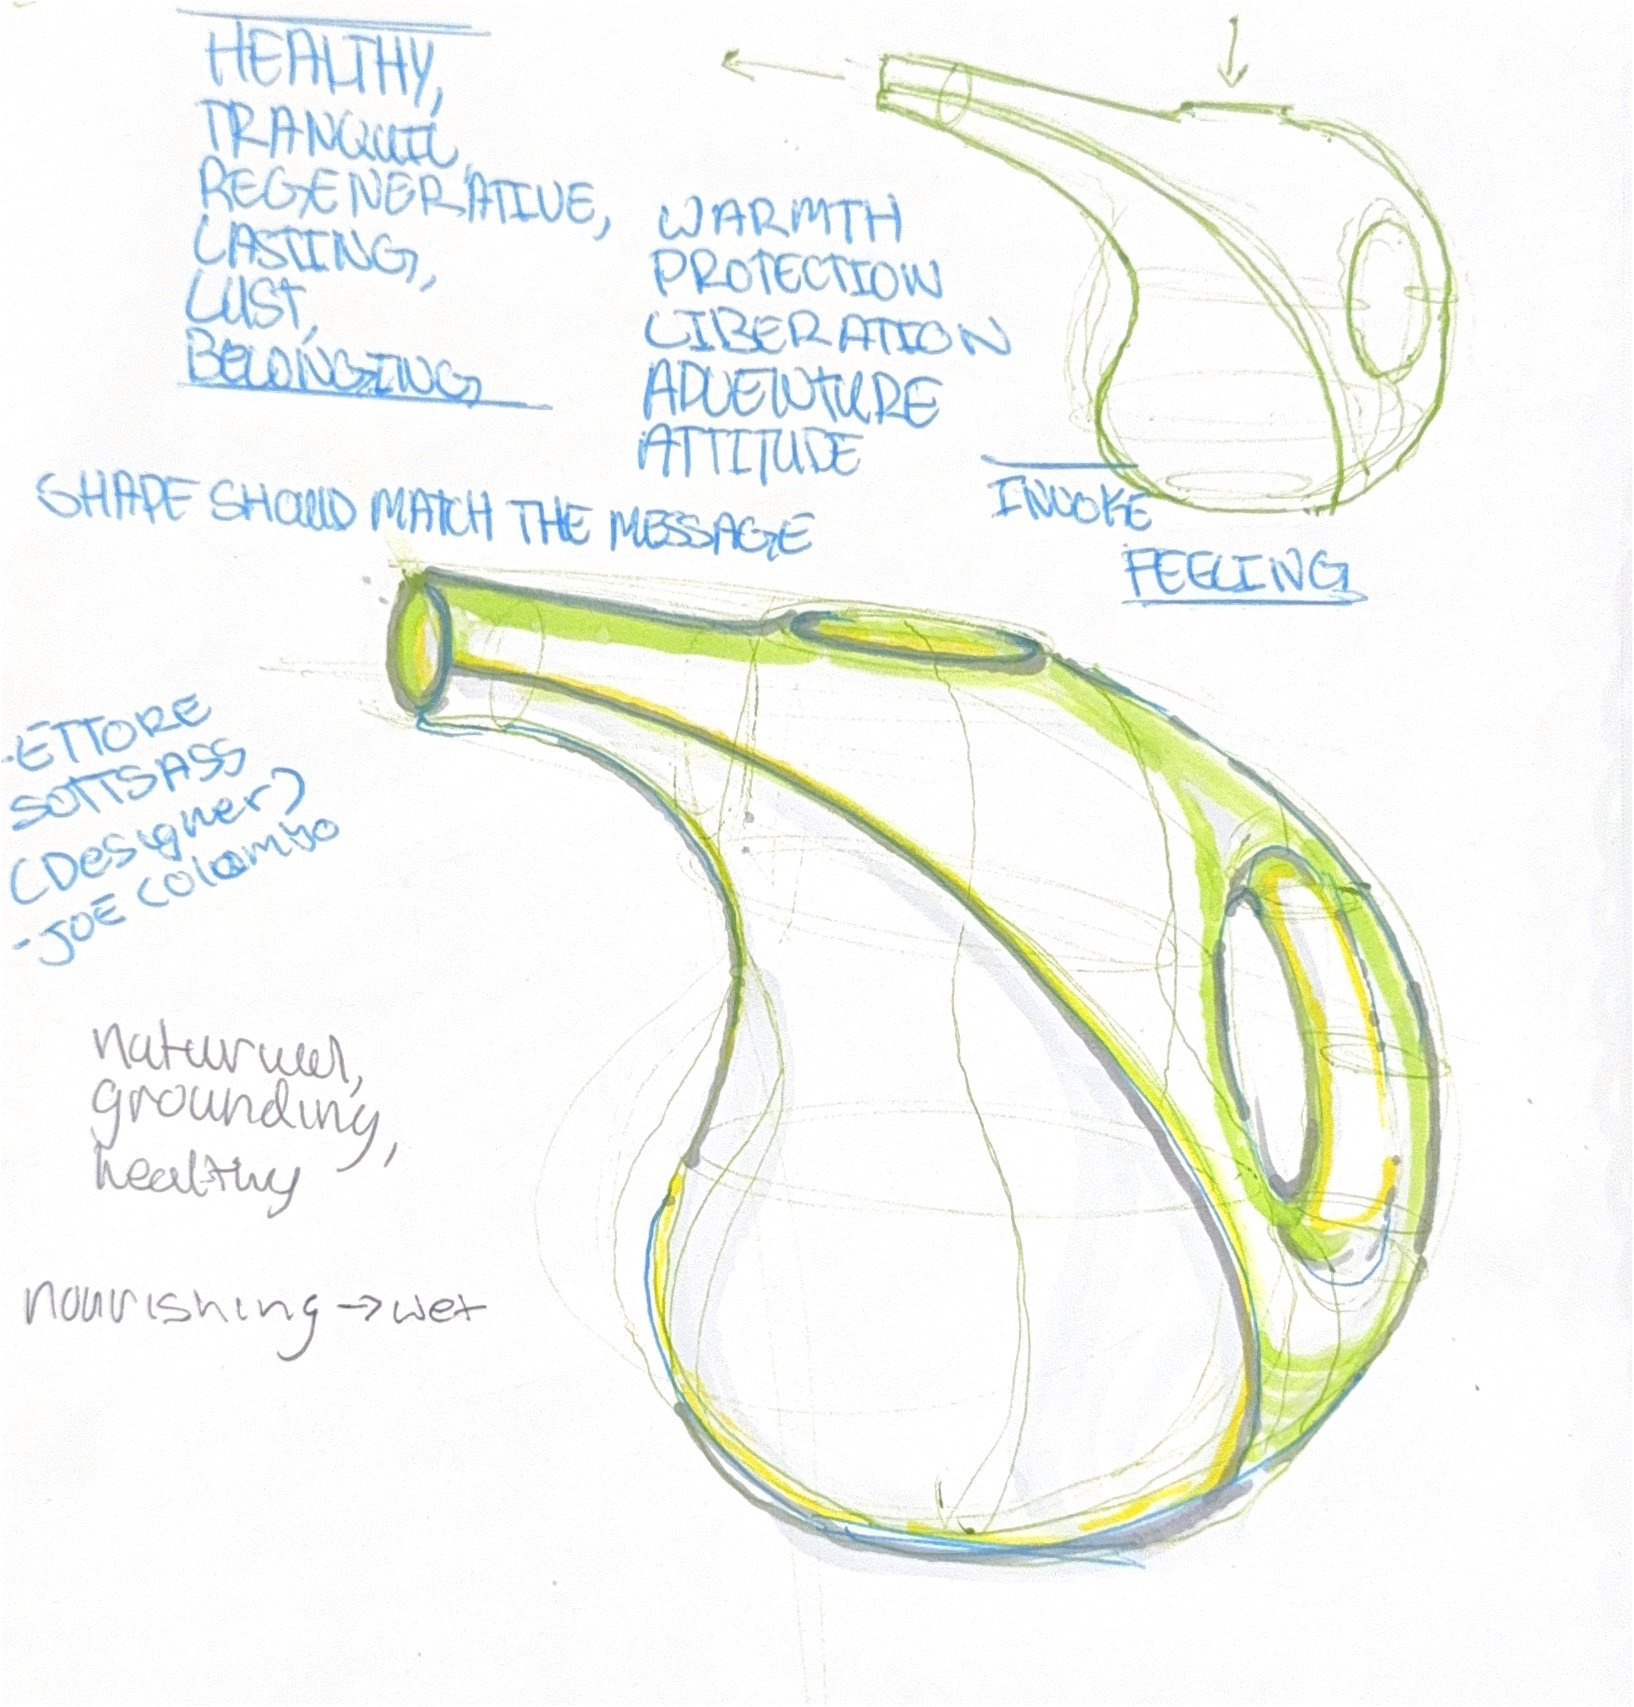 HEALTHY,
TRANQUIL
REGENERATIVE,
LASTING,
LUST,
BELONGING
WARMTH
PROTECTION
LIBERATION
ADVENTURE
ATTITUDE
SHAPE SHOULD MATCH THE MESSAGE
INVOKE
FEELING
-ETTORE
SOTTSASS
(Designer)
-JOE COLOMBO
natural,
grounding,
healthy
nourishing → wet